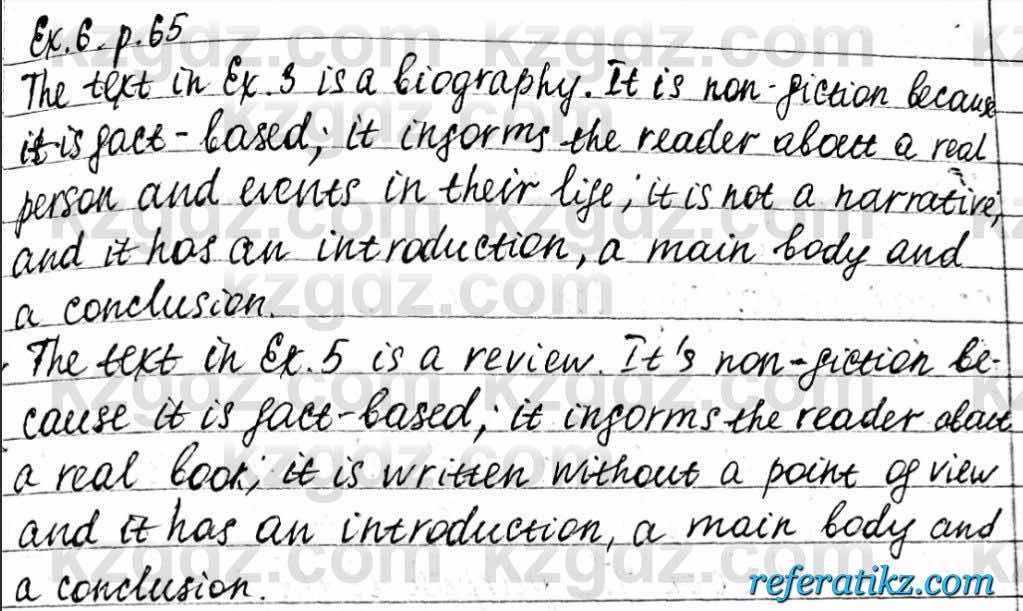 Ex. 6. p. 65
The text in Ex. 3 is a biography. It is non-fiction because
it is fact-based; it informs the reader about a real
person and events in their life; it is not a narrative,
and it has an introduction, a main body and
a conclusion.
The text in Ex. 5 is a review. It's non-fiction be-
cause it is fact-based; it informs the reader about
a real book; it is written without a point of view
and it has an introduction, a main body and
a conclusion.
referatikz.com
kzgdz.com